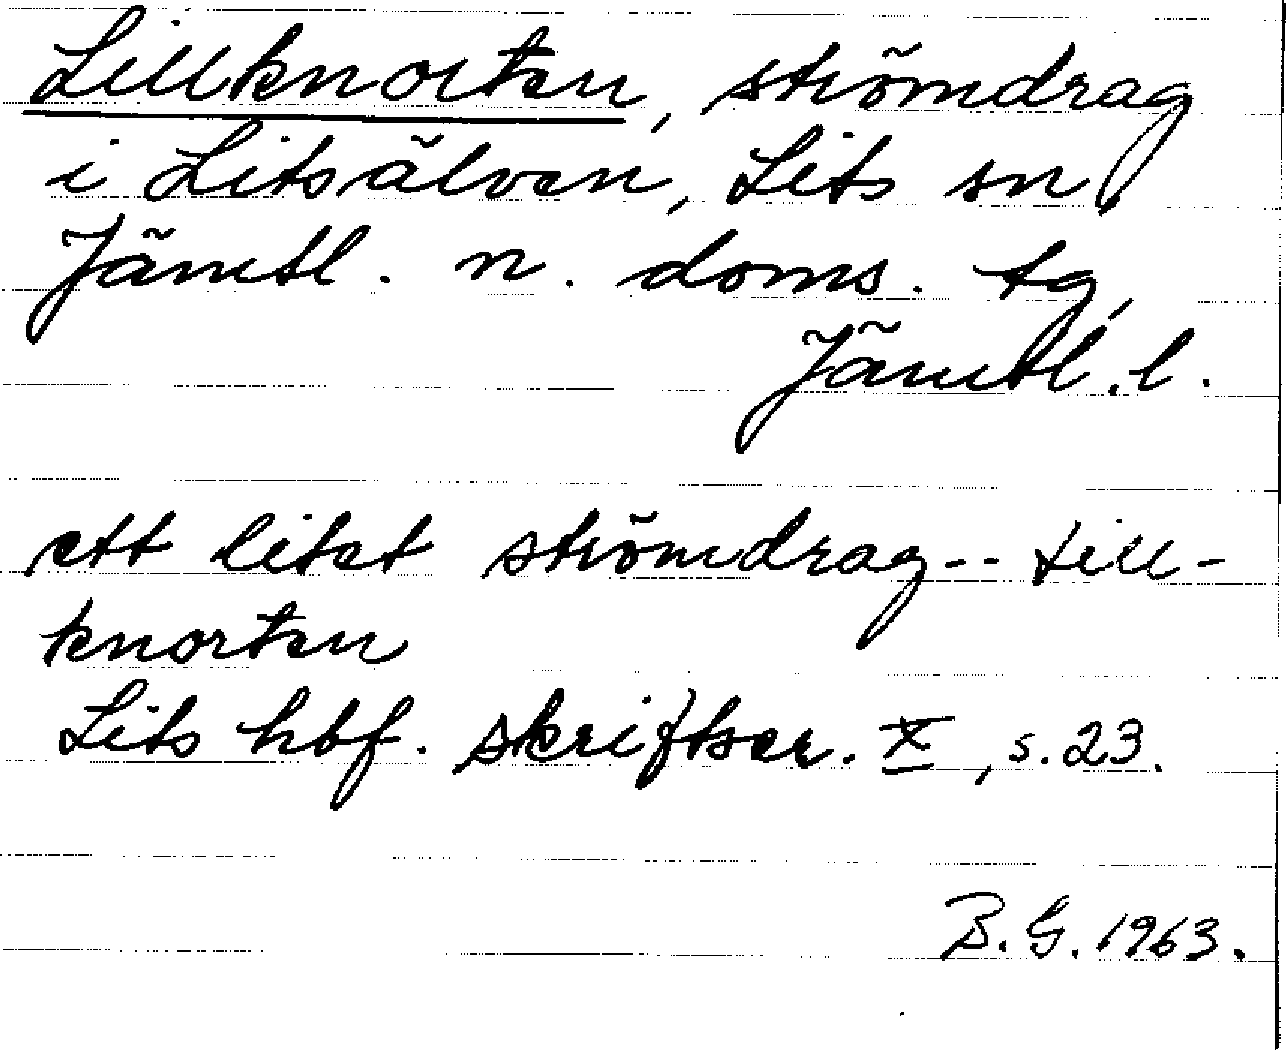 Lillknorten, strömdrag
i Litsälven, Lits sn,
Jämtl. n. doms. tg,
Jämtl. l.
ett litet strömdrag -- Lill-
knorten
Lits hbf. skriftser. X, s. 23.
B. G. 1963.